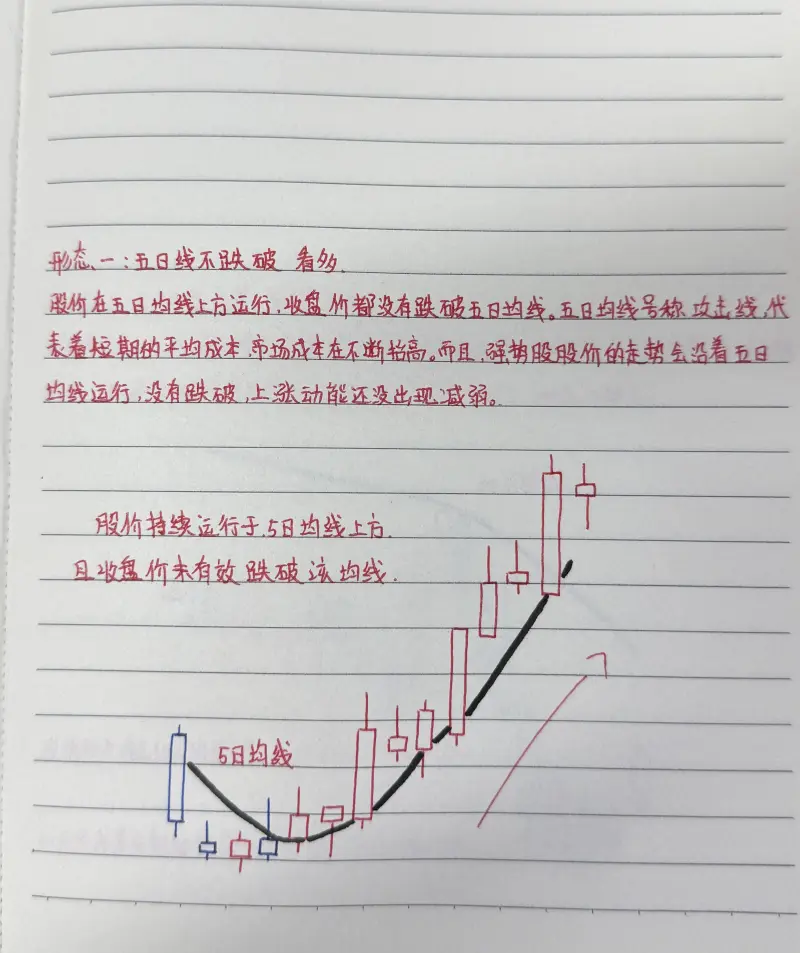 形态一:五日线不跌破 看多.
股价在五日均线上方运行,收盘价都没有跌破五日均线。五日均线号称攻击线,代
表着短期的平均成本,市场成本在不断抬高。而且,强势股股价的走势会沿着五日
均线运行,没有跌破,上涨动能还没出现减弱。
股价持续运行于5日均线上方.
且收盘价未有效跌破该均线.
5日均线